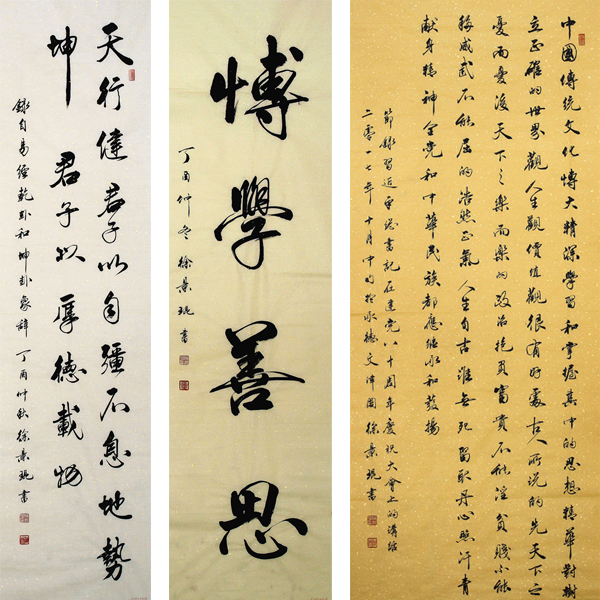 天行健君子以自彊不息地勢
坤 君子以厚德載物
錄自易經乾卦和坤卦象辭 丁酉仲秋徐景琨書
愽學善思
丁酉仲冬徐景琨書
中國傳統文化愽大精深學習和掌握其中的思想精華對樹
立正確的世界觀人生觀價值觀很有好處古人所說的先天下之
憂而憂後天下之樂而樂的政治抱負富貴不能淫貧賤不能
移威武不能屈的浩然正氣人生自古誰無死留取丹心照汗青
獻身精神全党和中華民族都應繼承和發揚
節錄習近平總書記在建党八十周年慶祝大會上的講話
二零一七年十月中旬於承德文津園徐景琨書